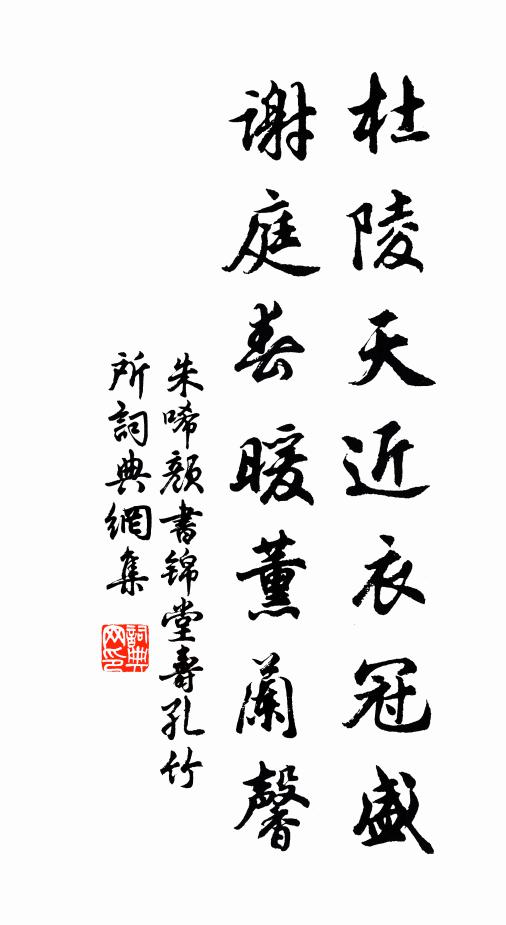 杜陵天近衣冠盛
谢庭春暖薰蘭馨
朱晞颜書锦堂壽孔竹
所詞典網集
詞典网印